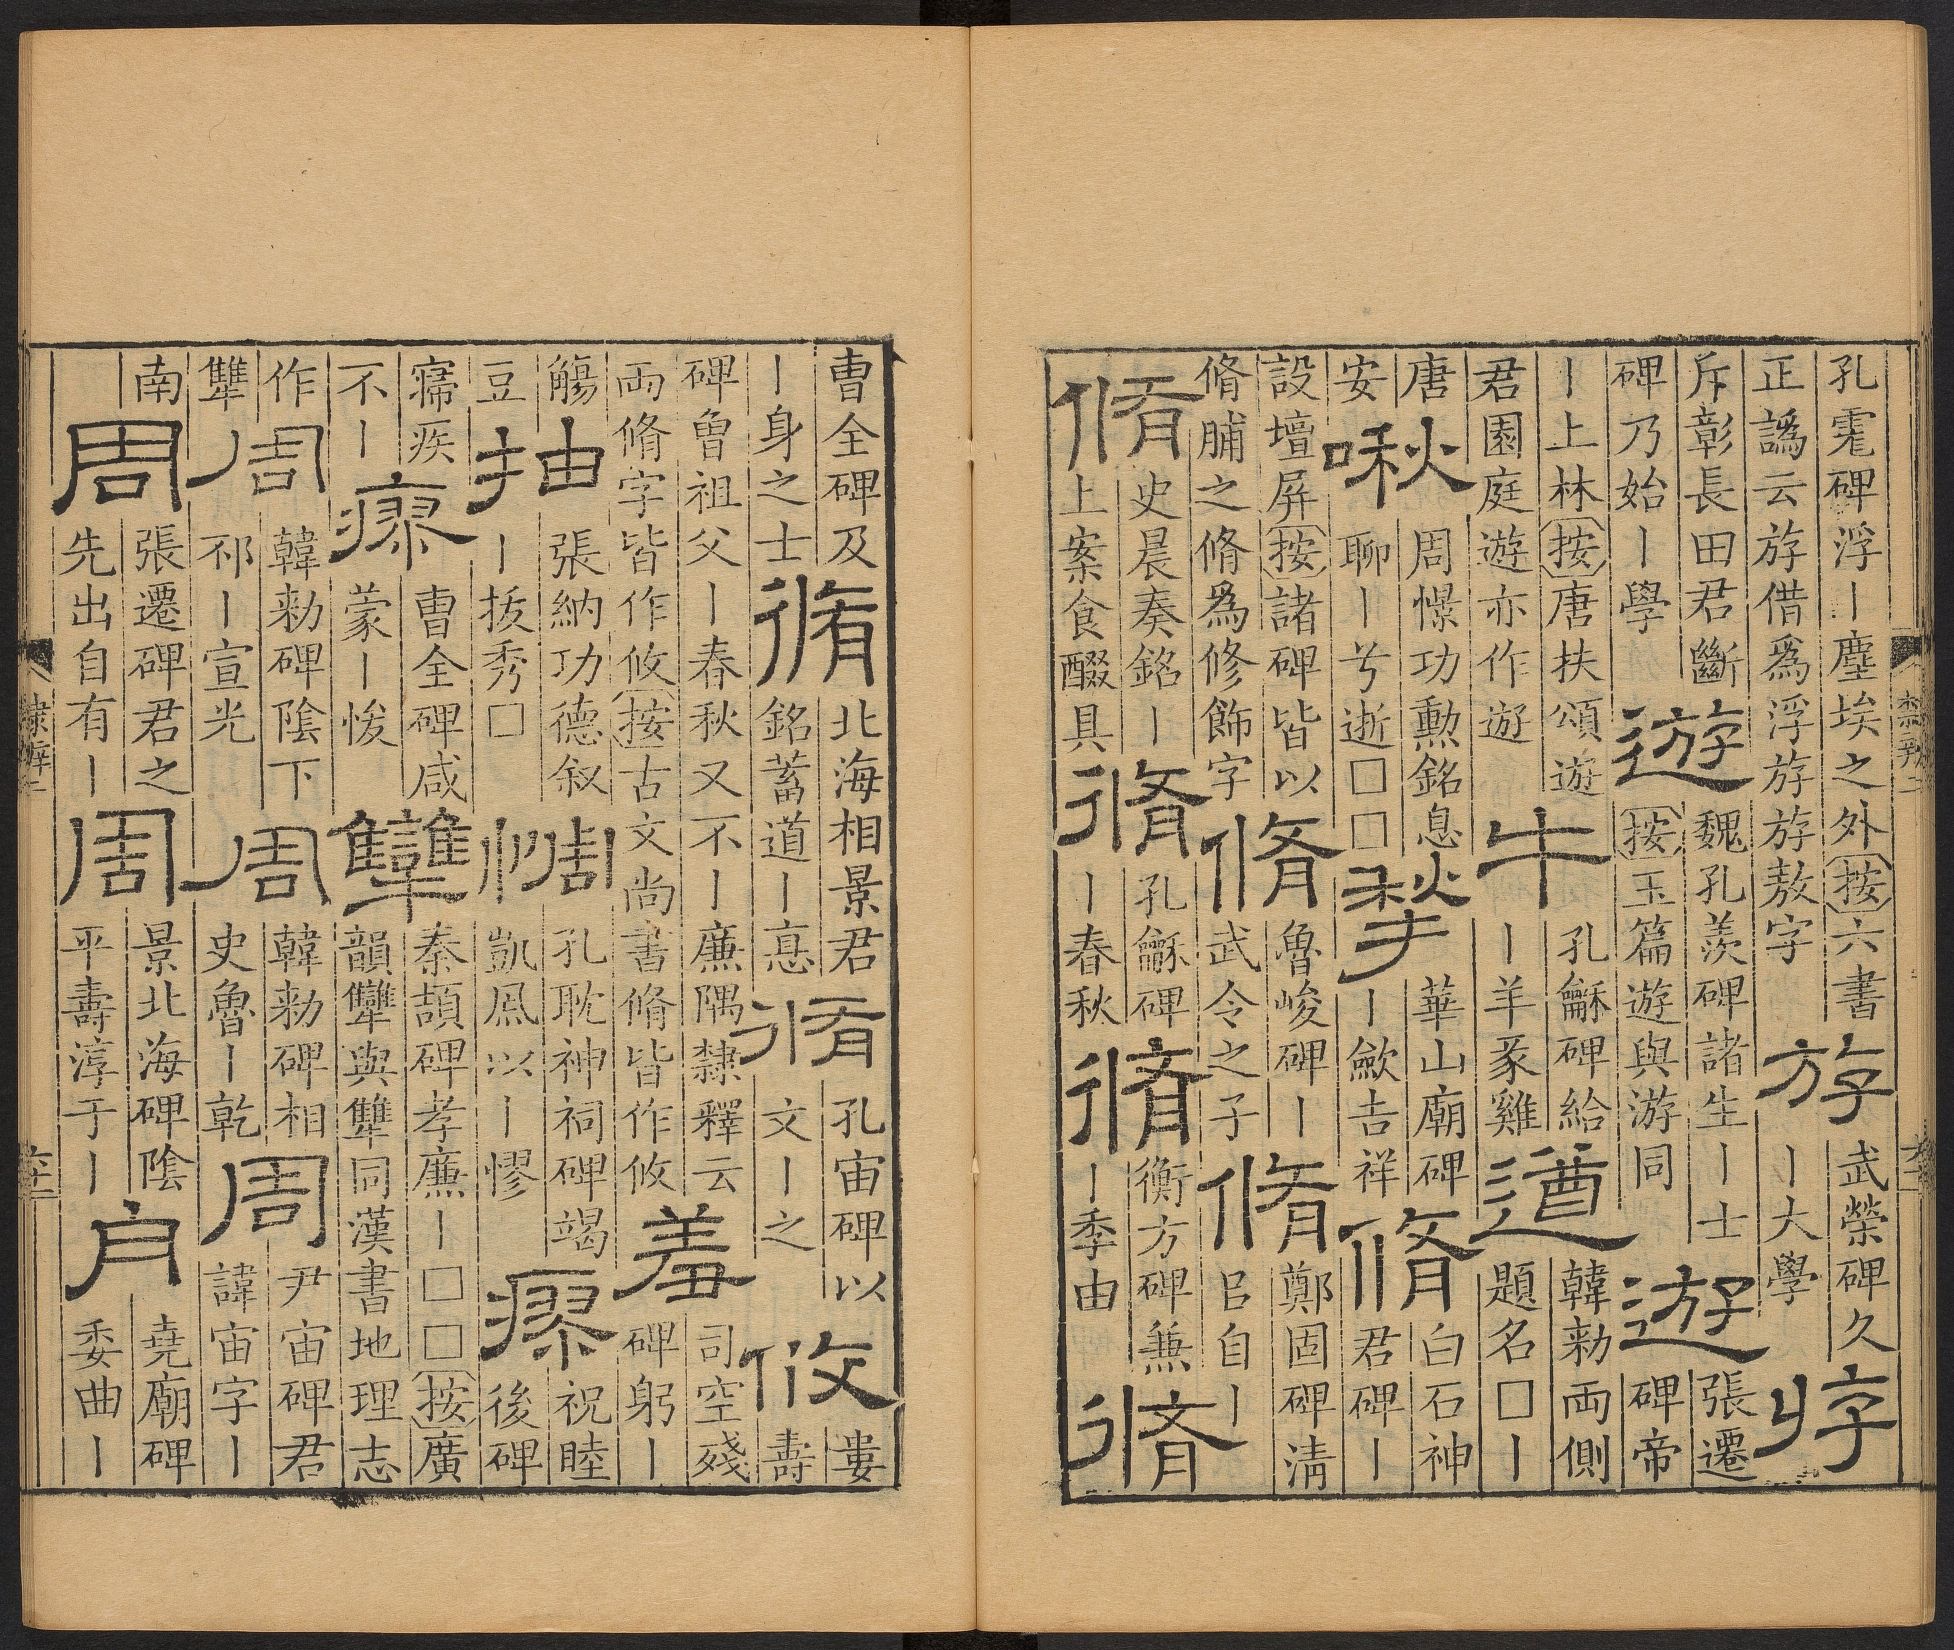 孔霓碑浮丨塵埃之外按六書
正譌云斿借爲浮游游敖字
斿
武榮碑久
丨大學
斥彰長田君斷
碑乃始丨學
遊
魏孔羨碑諸生丨士
按玉篇遊與游同
遊
張遷
碑帝
丨上林按唐扶頌遊
君園庭遊亦作遊
牛
孔龢碑給
丨羊豕雞
遒
韓勑兩側
題名□丨
唐
安
啾
周憬功勳銘息
聊丨兮逝□□
揫
華山廟碑
丨歛吉祥
脩
白石神
君碑丨
設壇屏按諸碑皆以
脩脯之脩爲修飾字
脩
魯峻碑丨
武令之子
脩
鄭固碑清
吕自丨
脩
史晨奏銘丨
上案食醊具
脩
孔龢碑
丨春秋
脩
衡方碑兼
丨季由
脩
曹全碑及
丨身之士
脩
北海相景君
銘蓄道丨悳
脩
孔宙碑以
文丨之
攸
婁
壽
碑曾祖父丨春秋又不丨廉隅隸釋云
兩脩字皆作攸按古文尚書脩皆作攸
羞
司空殘
碑躬丨
觴
豆
抽
張納功德叙
丨拔秀□
惆
孔耽神祠碑竭
凱風以丨憀
瘳
祝睦
後碑
寢疾
不丨
瘳
曹全碑咸
蒙丨悛
犫
秦頡碑孝廉丨□□按廣
韻犫與犨同漢書地理志
作
犨
周
韓勑碑陰下
邳丨宣光
周
韓勑碑相
史魯丨乾
周
尹宙碑君
諱宙字丨
南
周
張遷碑君之
先出自有丨
周
景北海碑陰
平壽淳于丨
堯廟碑
委曲丨